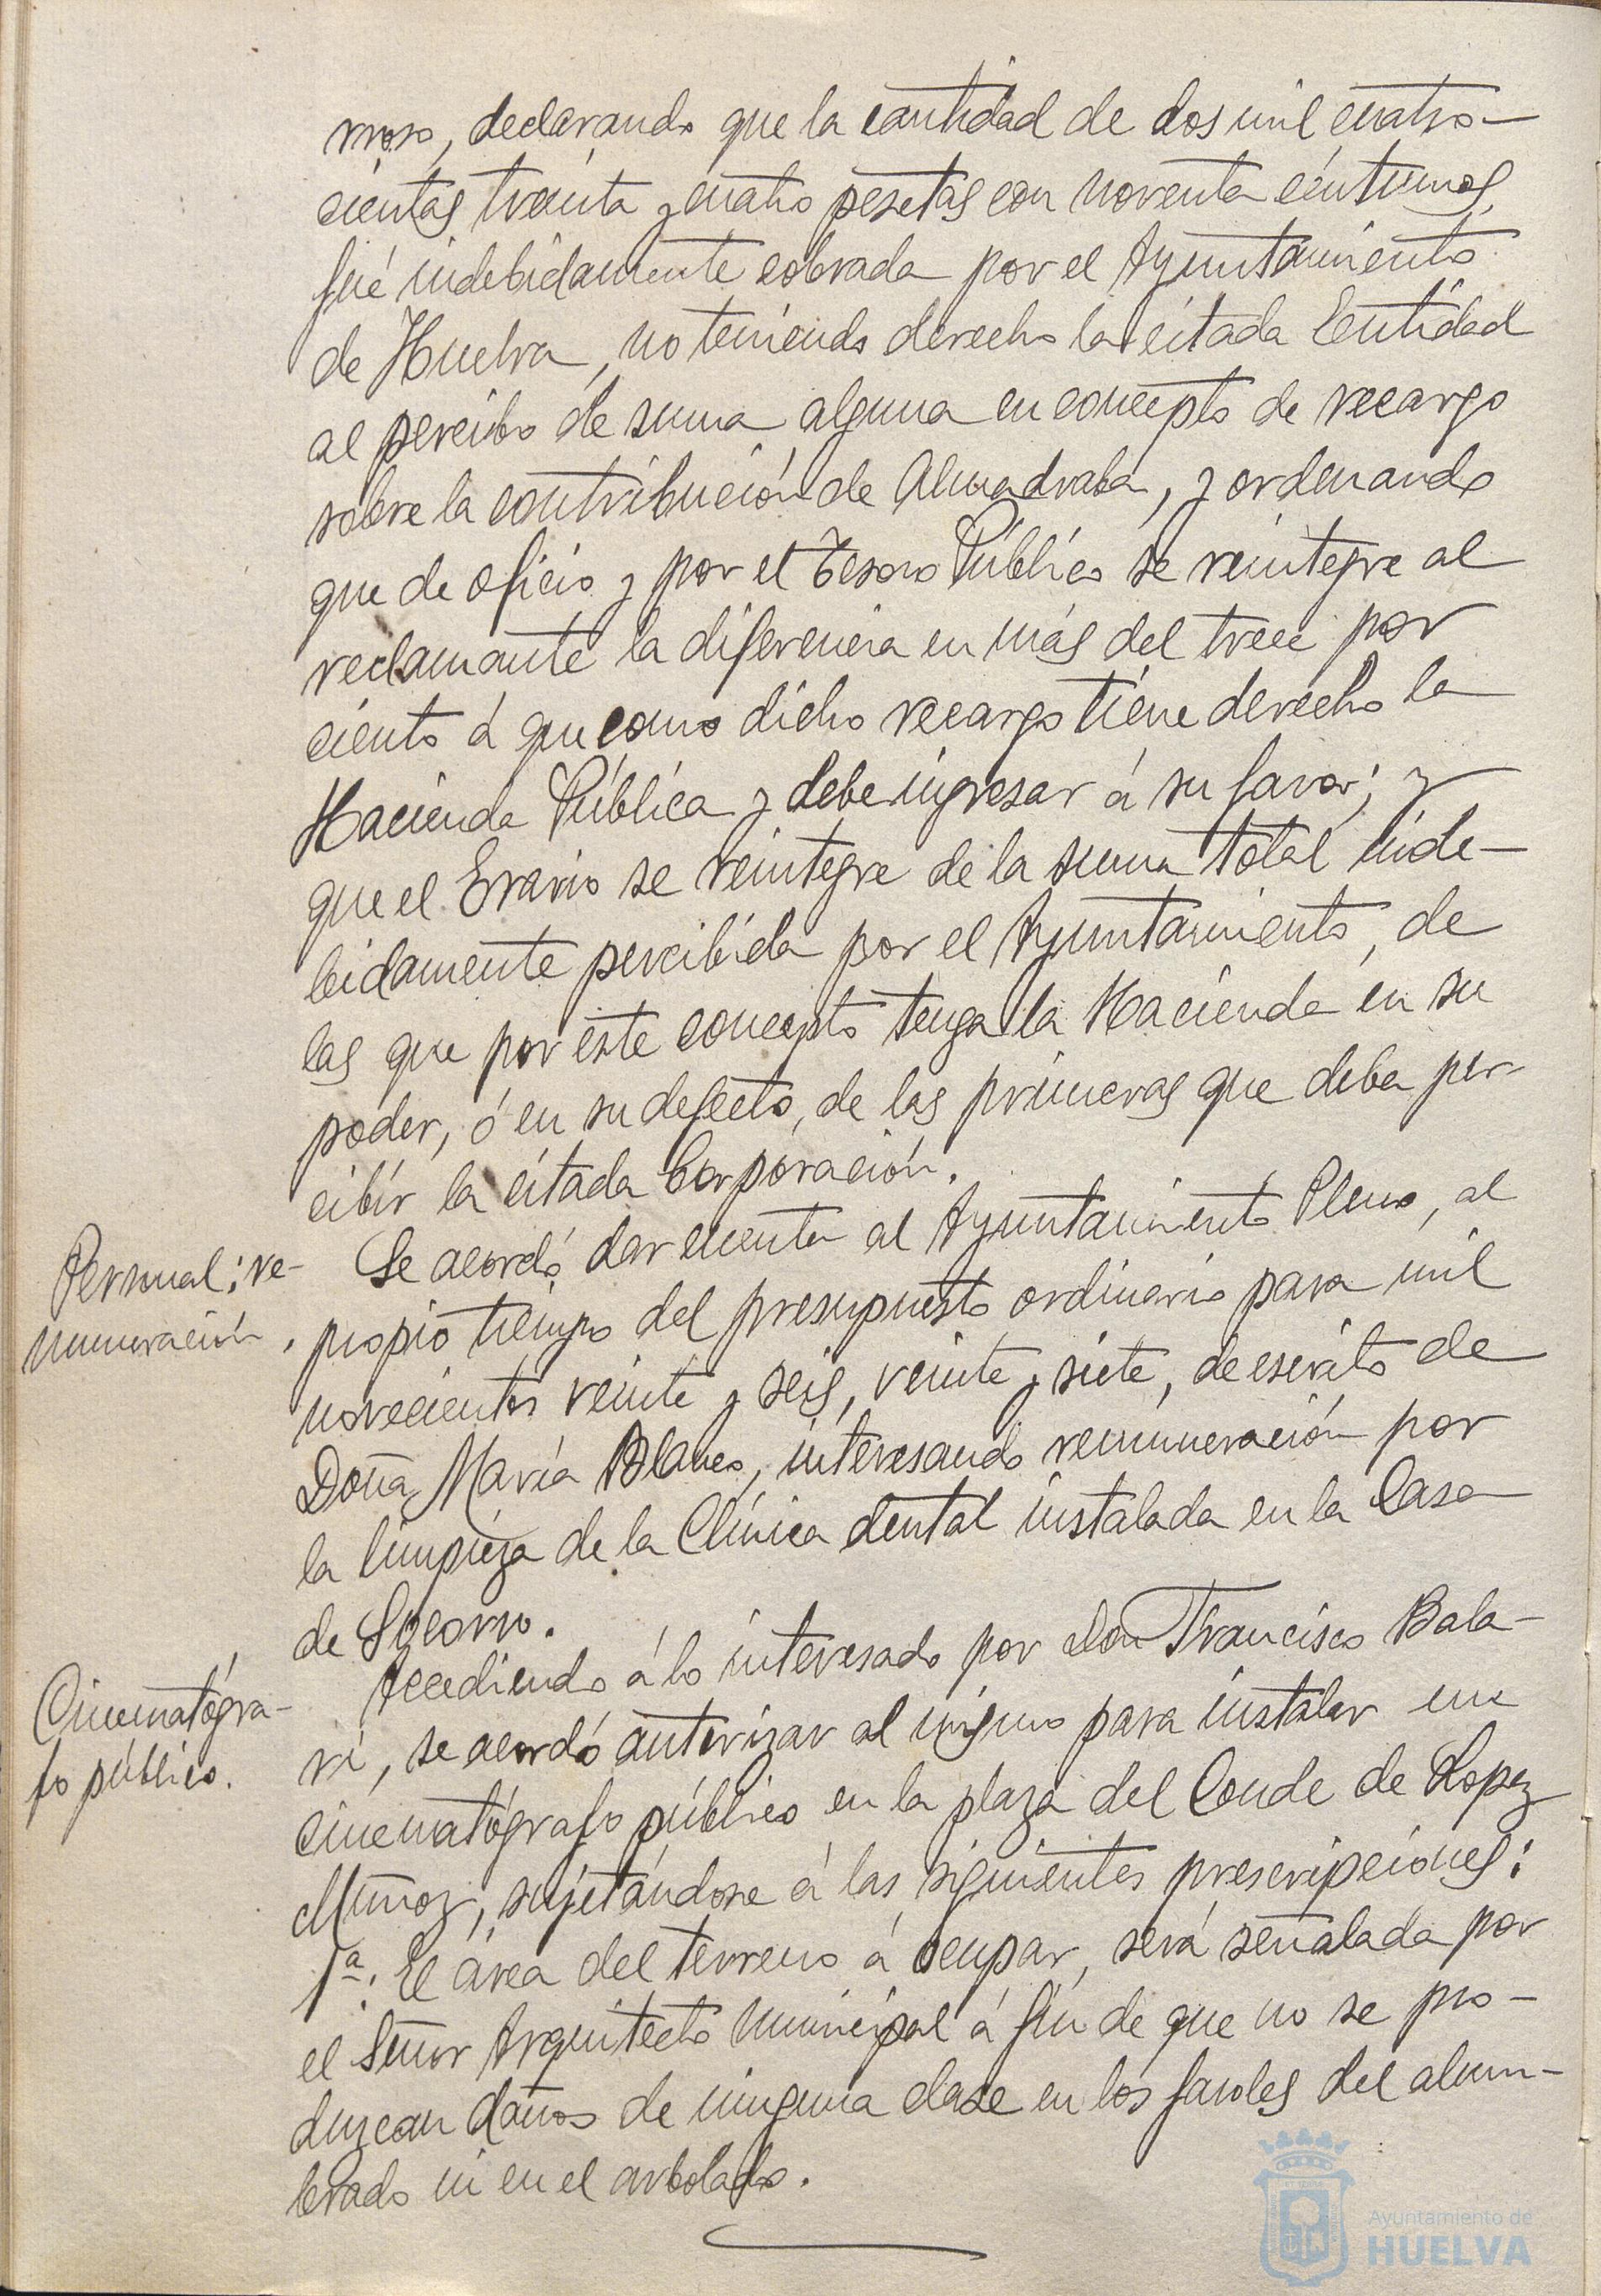 rroso, declarando que la cantidad de dos mil cuatro-
cientas treinta y cuatro pesetas con noventa céntimos,
fué indebidamente cobrada por el Ayuntamiento
de Huelva, no teniendo derecho la citada Entidad
al percibo de suma alguna en concepto de recargo
sobre la contribución de Almadraba, y ordenando
que de oficio y por el Tesoro Público se reintegre al
reclamante la diferencia en más del trece por
ciento á que como dicho recargo tiene derecho la
Hacienda Pública y debe ingresar á su favor; y
que el Erario se reintegre de la suma total inde-
bidamente percibida por el Ayuntamiento, de
las que por este concepto tenga la Hacienda en su
poder, ó en su defecto, de las primeras que deba per-
cibir la citada Corporación.
Personal: re-
muneración.
Se acordó dar cuenta al Ayuntamiento Pleno, al
propio tiempo del presupuesto ordinario para mil
novecientos veinte y seis, veinte y siete, de escrito de
Doña María Blanco, interesando remuneración por
la limpieza de la Clínica dental instalada en la Casa
de Socorro.
Cinematógra-
fo público.
Accediendo á lo interesado por Don Francisco Bala-
ri, se acordó autorizar al mismo para instalar un
cinematógrafo público en la plaza del Conde de Lopez
Muñoz, sujetándose á las siguientes prescripciones:
1ª. El área del terreno á ocupar, será señalada por
el Señor Arquitecto Municipal á fin de que no se pro-
duzcan daños de ninguna clase en los faroles del alum-
brado ni en el arbolado.
Ayuntamiento de
HUELVA